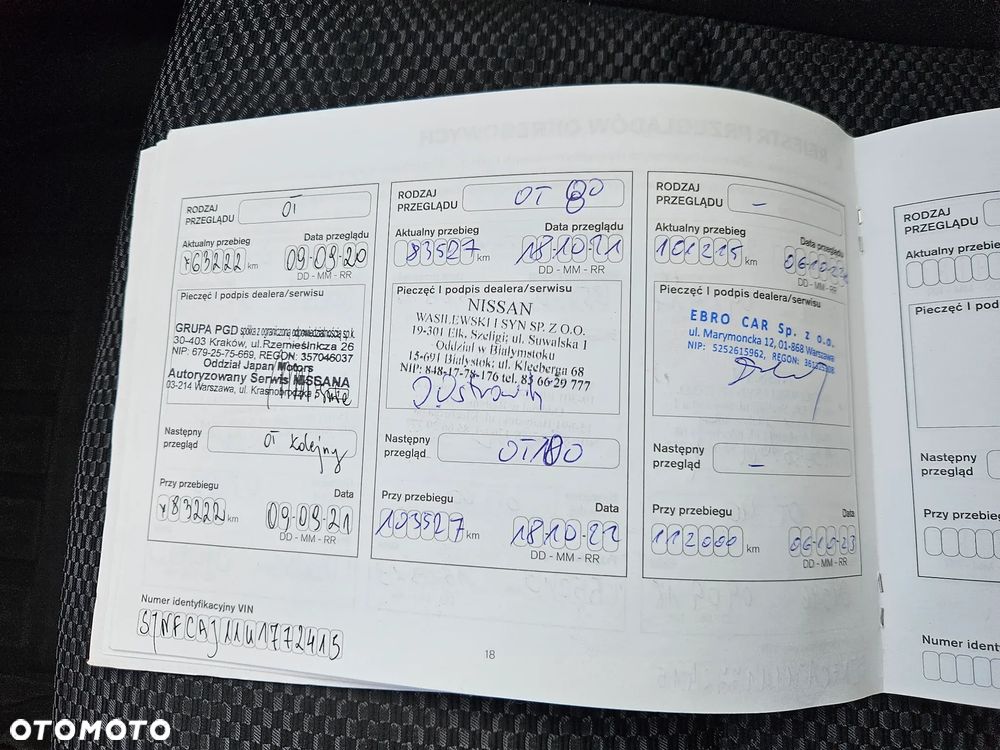 RODZAJ
PRZEGLĄDU
OT
Aktualny przebieg
Data przeglądu
63222 km
09-09-20
DD - MM - RR
Pieczęć I podpis dealera/serwisu
GRUPA PGD spółka z ograniczoną odpowiedzialnością sp.k.
30-403 Kraków, ul.Rzemieślnicza 26
NIP: 679-25-75-669, REGON: 357046037
Oddział Japan Motors
Autoryzowany Serwis NISSANA
03-214 Warszawa, ul. Krasnobrodzka 5
Następny
przegląd
OT kolejny
Przy przebiegu
Data
83222 km
09-09-21
DD - MM - RR
RODZAJ
PRZEGLĄDU
OT 80
Aktualny przebieg
Data przeglądu
83527 km
18-10-21
DD - MM - RR
Pieczęć I podpis dealera/serwisu
NISSAN
WASILEWSKI I SYN SP. Z O.O.
19-301 Ełk, Szeligi; ul. Suwalska 1
Oddział w Białymstoku
15-691 Białystok; ul. Kleeberga 68
NIP: 848-17-78-176 tel. 85 66 29 777
Następny
przegląd
OT 100
Przy przebiegu
Data
103527 km
18-10-22
DD - MM - RR
RODZAJ
PRZEGLĄDU
–
Aktualny przebieg
Data przeglądu
101215 km
06-10-22
DD - MM - RR
Pieczęć I podpis dealera/serwisu
EBRO CAR Sp. z o.o.
ul. Marymoncka 12, 01-868 Warszawa
NIP: 5252615962, REGON:
Następny
przegląd
–
Przy przebiegu
Data
112000 km
06-10-23
DD - MM - RR
Numer identyfikacyjny VIN
SJNFCAJ11U1772415
18
RODZAJ
PRZEGLĄDU
Aktualny przebieg
Pieczęć I pod
Następny
przegląd
Przy przebieg
Numer identy
OTOMOTO